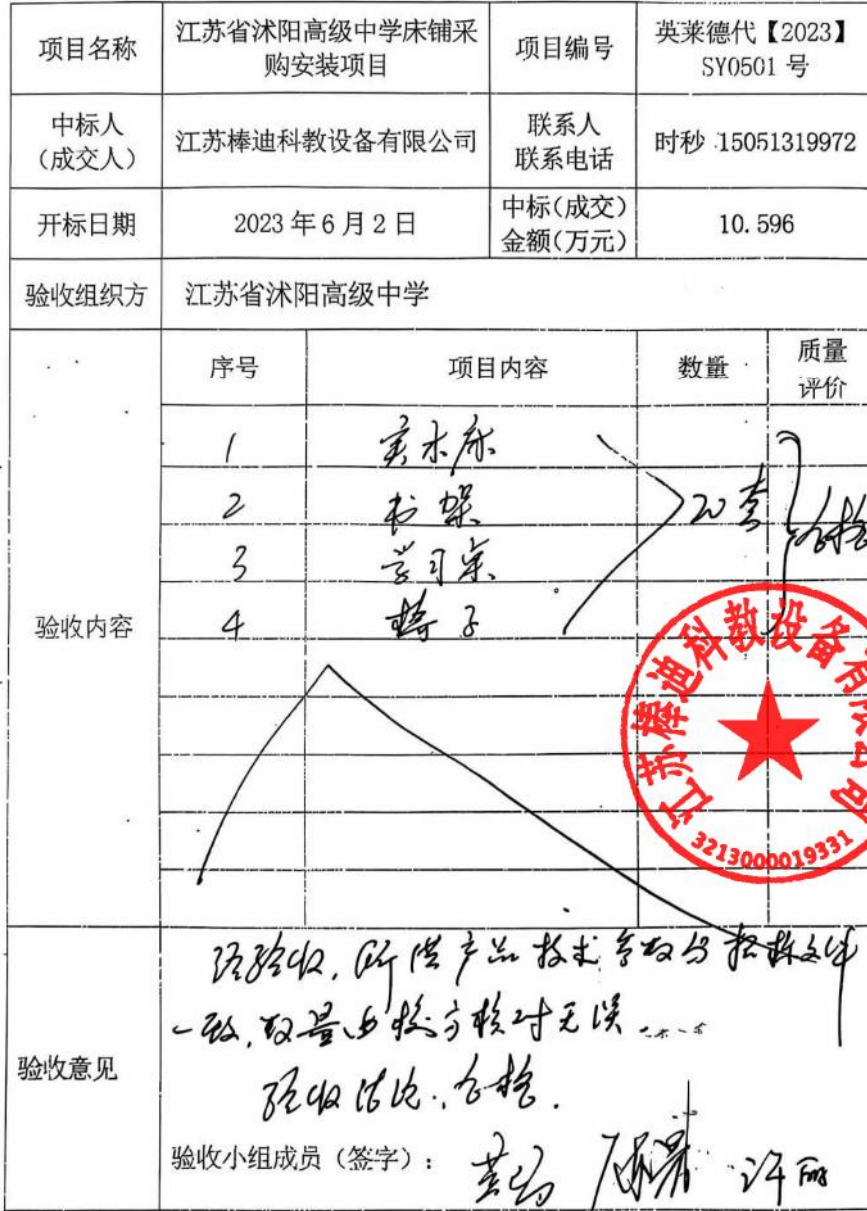 项目名称
江苏省沭阳高级中学床铺采
购安装项目
项目编号
英莱德代【2023】
SY0501 号
中标人
（成交人）
江苏棒迪科教设备有限公司
联系人
联系电话
时秒 15051319972
开标日期
2023 年 6 月 2 日
中标(成交)
金额(万元)
10.596
验收组织方
江苏省沭阳高级中学
验收内容
序号
项目内容
数量
质量
评价
1
实木床
2
书架
3
学习桌
4
椅子
20套
合格
江苏棒迪科教设备有限公司
3213000019331
验收意见
经验收，所供产品技术参数与招标文件
一致，数量由校方核对无误
验收结论：合格.
验收小组成员（签字）：
许丽